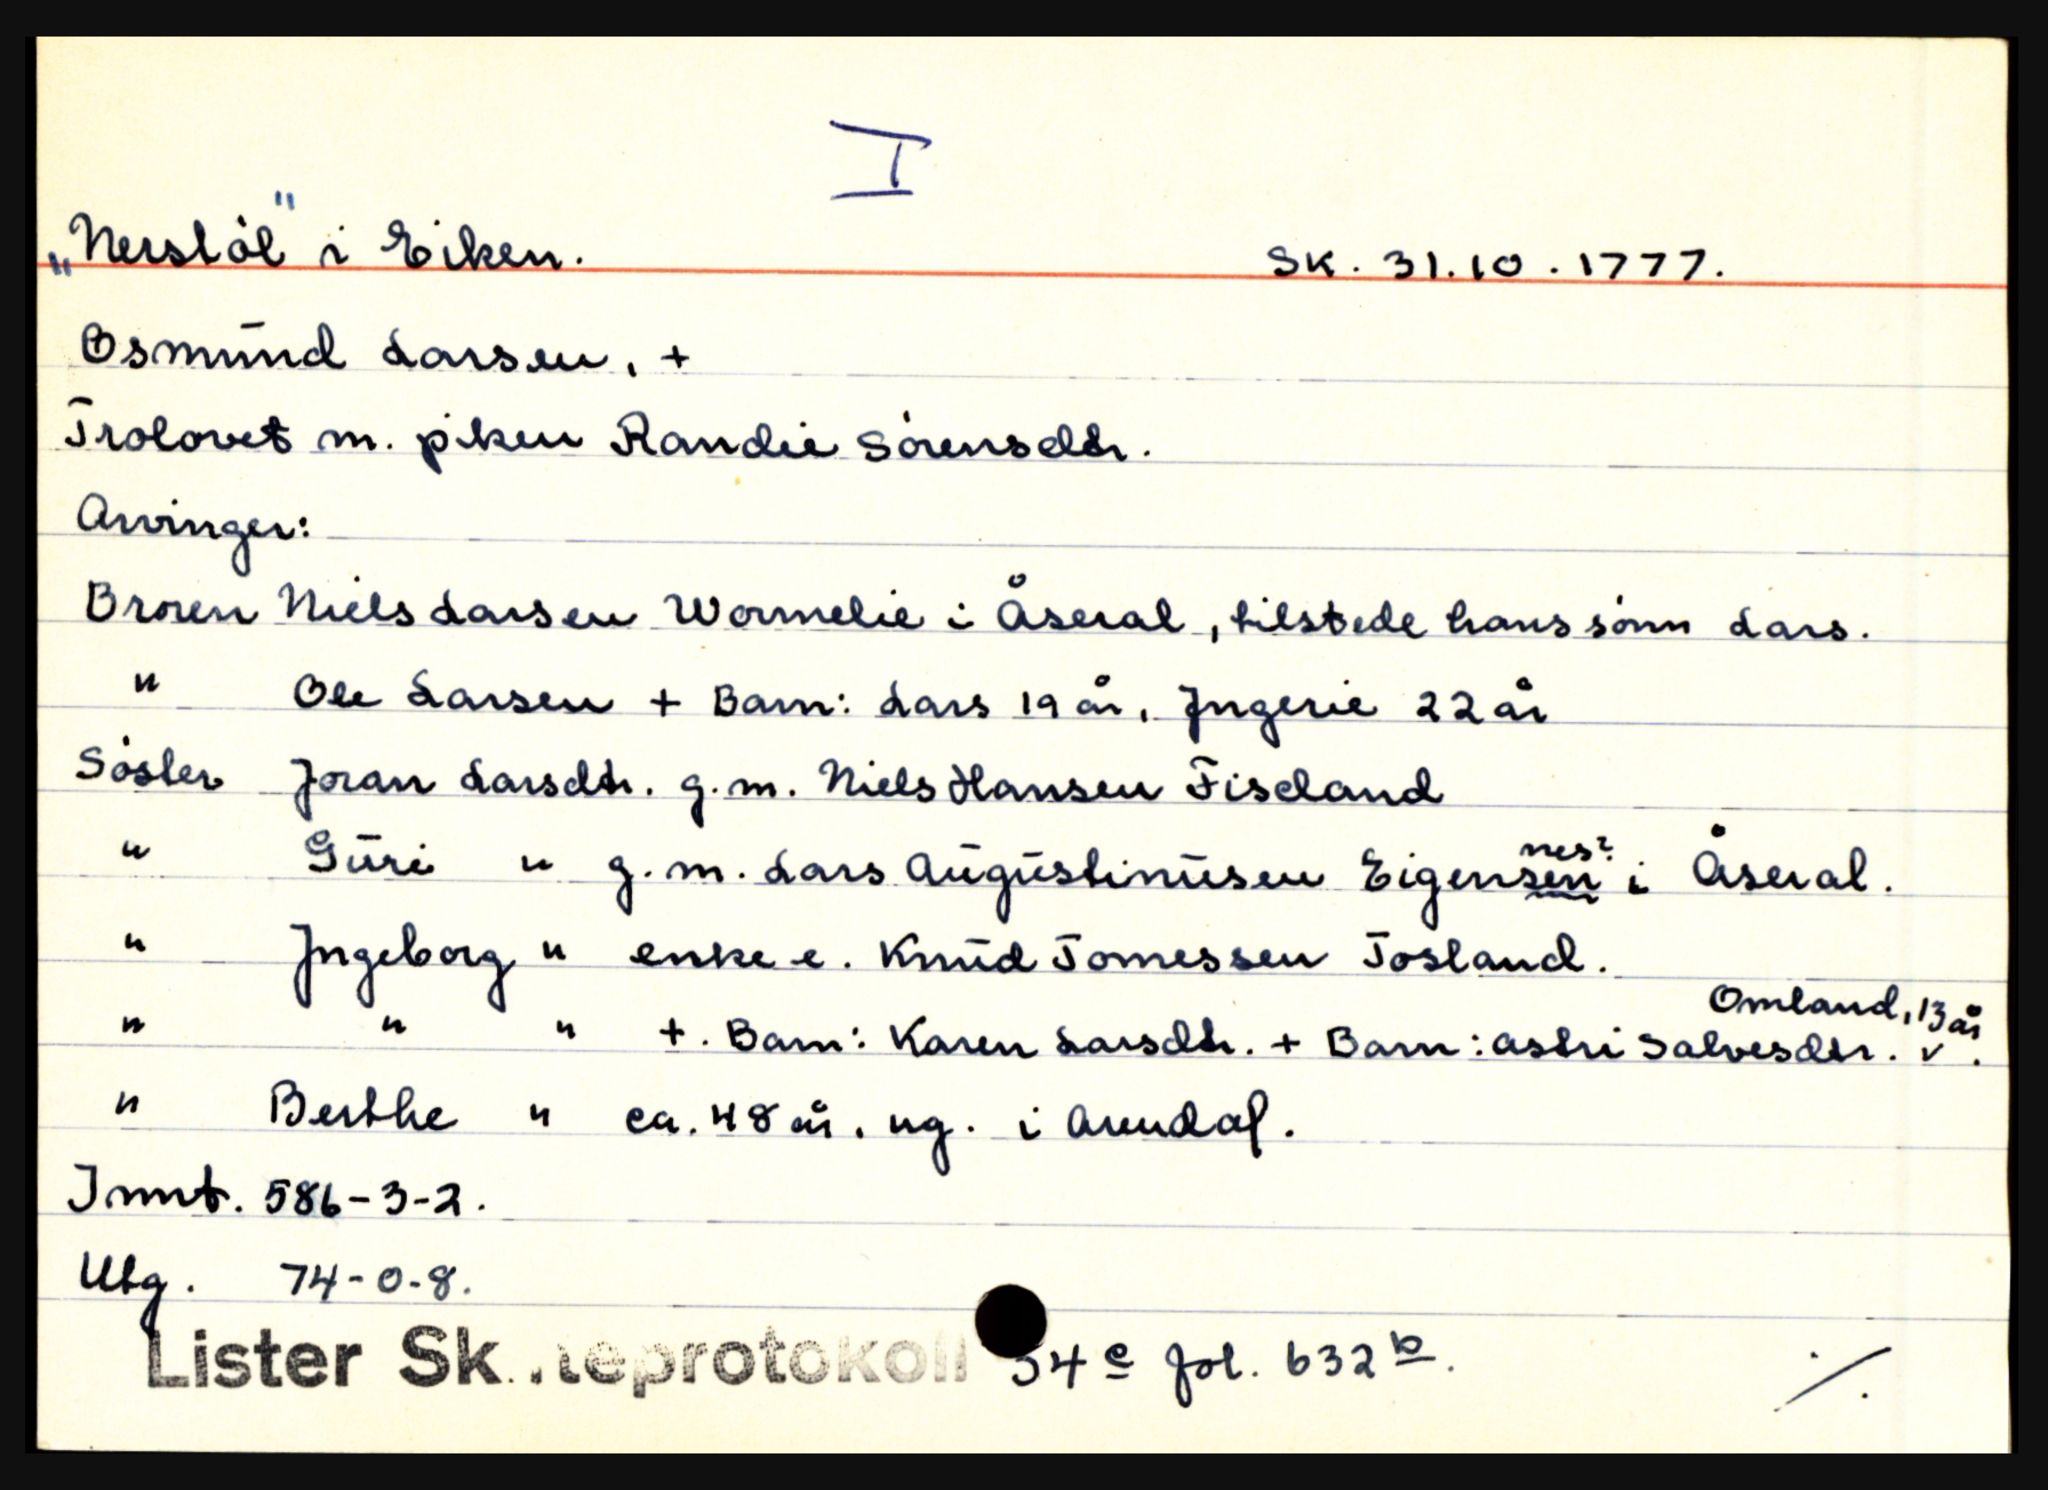 I
"Nerstöl" i Eiken. Sk. 31.10.1777.
Osmund Larsen, +
Trolovet m. piken Randie Sörensdtr.
Arvinger:
Broren Niels Larsen Wormelie i Åseral, tilstede hans sönn Lars.
" Ole Larsen + Barn: Lars 19 år, Ingerie 22 år
Söster Joran Larsdtr. g.m. Niels Hansen Fiseland
" Guri " g.m. Lars Augustinusen Eigensen nes? i Åseral.
" Ingeborg " enke e. Knud Tomessen Tosland.
" " " +. Barn: Karen Larsdtr. + Barn: Astri Salvesdtr. Omland, 13 år.
" Berthe " ca. 48 år, ug. i Arendal.
Innt. 586-3-2.
Utg. 74-0-8.
Lister Sk..teprotokoll 34 c fol. 632 b.